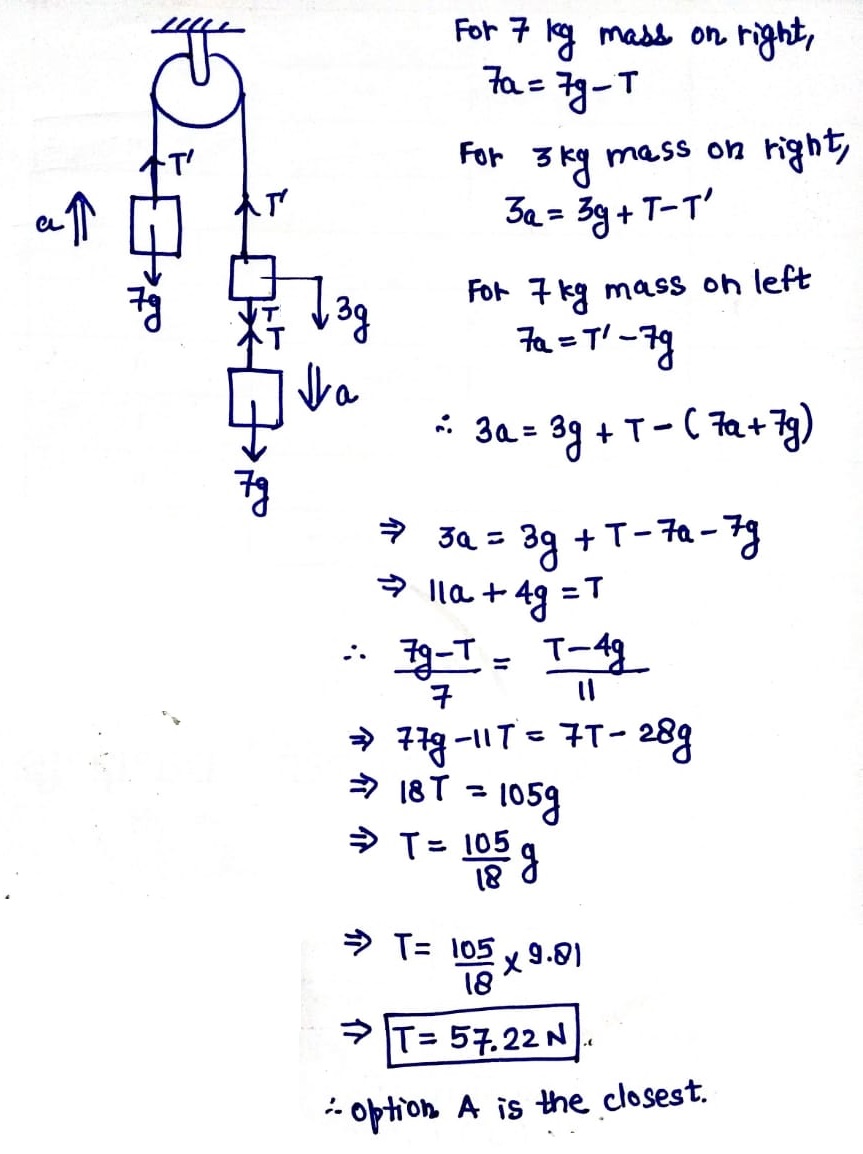 For 7 kg mass on right,
7a = 7g – T
For 3 kg mass on right,
3a = 3g + T – T'
For 7 kg mass on left
7a = T' – 7g
∴ 3a = 3g + T – (7a + 7g)
⇒ 3a = 3g + T – 7a – 7g
⇒ 11a + 4g = T
∴ 7g–T/7 = T–4g/11
⇒ 77g – 11T = 7T – 28g
⇒ 18T = 105g
⇒ T = 105/18 g
⇒ T = 105/18 × 9.81
⇒ T = 57.22 N.
∴ option A is the closest.
T'
a
7g
T'
3g
T
T
a
7g